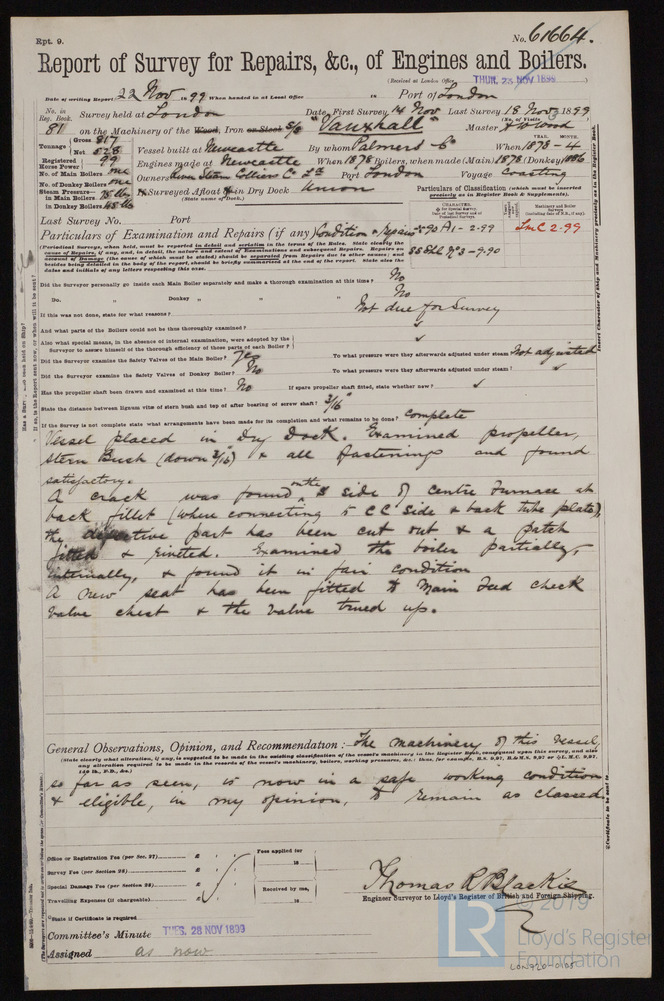 Rpt. 9.
No. 61664.
Report of Survey for Repairs, &c., of Engines and Boilers.
(Received at London Office THUR. 23 NOV 1899)
Date of writing Report 22 Nov 1899 When handed in at Local Office 18 Port of London
No. in Reg. Book. 81 Survey held at London Date, First Survey 14 Nov Last Survey 18 Nov 1899
(No. of Visits 3)
on the Machinery of the Wood, Iron or Steel S/S "Vauxhall" Master
Tonnage Gross 817 Net 528
Vessel built at Newcastle By whom Palmers Co When 1878-4
Registered Horse Power 99 Engines made at Newcastle When 1878 Boilers, when made (Main) 1878 (Donkey) 1886
No. of Main Boilers one Owners Steam Colliers Co Ld Port London Voyage Coasting
No. of Donkey Boilers one
Steam Pressure in Main Boilers 75 lbs If Surveyed Afloat or in Dry Dock Union
(State name of Dock.)
in Donkey Boilers 45 lbs
Particulars of Classification (which must be inserted precisely as in Register Book & Supplements).
Last Survey No. Port
Particulars of Examination and Repairs (if any) Condition & Repairs
A1 - 2.99 LMC 2.99
SS Ldn No 3 - 9.90
Did the Surveyor personally go inside each Main Boiler separately and make a thorough examination at this time? No
Do. " Donkey " " No
If this was not done, state for what reasons? Not due for Survey
And what parts of the Boilers could not be thoroughly examined? ✓
Also what special means, in the absence of internal examination, were adopted by the Surveyor to assure himself of the thorough efficiency of those parts of each Boiler? ✓
Did the Surveyor examine the Safety Valves of the Main Boiler? Yes To what pressure were they afterwards adjusted under steam? Not adjusted
Did the Surveyor examine the Safety Valves of Donkey Boiler? No To what pressure were they afterwards adjusted under steam? ✓
Has the propeller shaft been drawn and examined at this time? No If spare propeller shaft fitted, state whether new? ✓
State the distance between lignum vitæ of stern bush and top of after bearing of screw shaft? 3/16"
If the Survey is not complete state what arrangements have been made for its completion and what remains to be done? Complete
Vessel placed in Dry Dock. Examined propeller,
Stern Bush (down 3/16) & all fastenings and found
satisfactory.
A crack was found on the S side of centre furnace at
back fillet (where connecting to CC side & back tube plate),
the defective part has been cut out & a patch
fitted & riveted. Examined the boiler partially,
internally, & found it in fair condition
A new seat has been fitted to Main Feed check
valve chest & the valve trued up.
General Observations, Opinion, and Recommendation:— The machinery of this vessel,
(State clearly what alteration, if any, is suggested to be made in the existing classification of the vessel's machinery in the Register Book, consequent upon this survey, and also any alteration required to be made in the records of the vessel's machinery, boilers, working pressures, &c.: thus, for example, B.S. 9,97, B.&M.S. 9,97 or L.M.C. 9,97, 140 lb., F.D., &c.)
so far as seen, is now in a safe working condition
& eligible, in my opinion, to remain as classed
Office or Registration Fee (per Sec. 27) £
Survey Fee (per Section 28) £
Special Damage Fee (per Section 28) £
Travelling Expenses (if chargeable) £
Fees applied for 18
Received by me, 18
Thomas R Blackie
Engineer Surveyor to Lloyd's Register of British and Foreign Shipping.
State if Certificate is required
Committee's Minute TUES. 28 NOV 1899
Assigned as now
© 2019
LR
Lloyd's Register
Foundation
LON720-0105